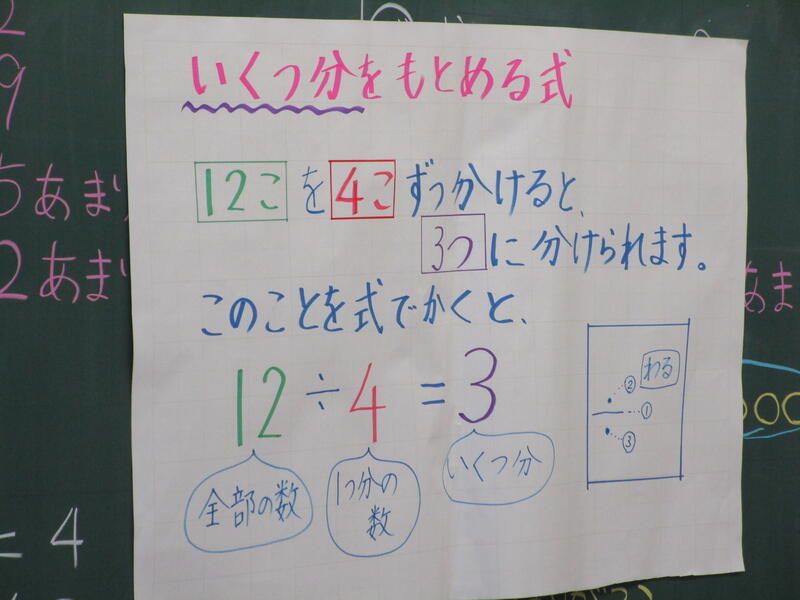 いくつ分をもとめる式
12こを4こずつ分けると、
3つに分けられます。
このことを式でかくと、
12÷4=3
全部の数
1つ分の
数
いくつ分
わる
②
①
③
9
5あまり
2あまり
= 4
あま